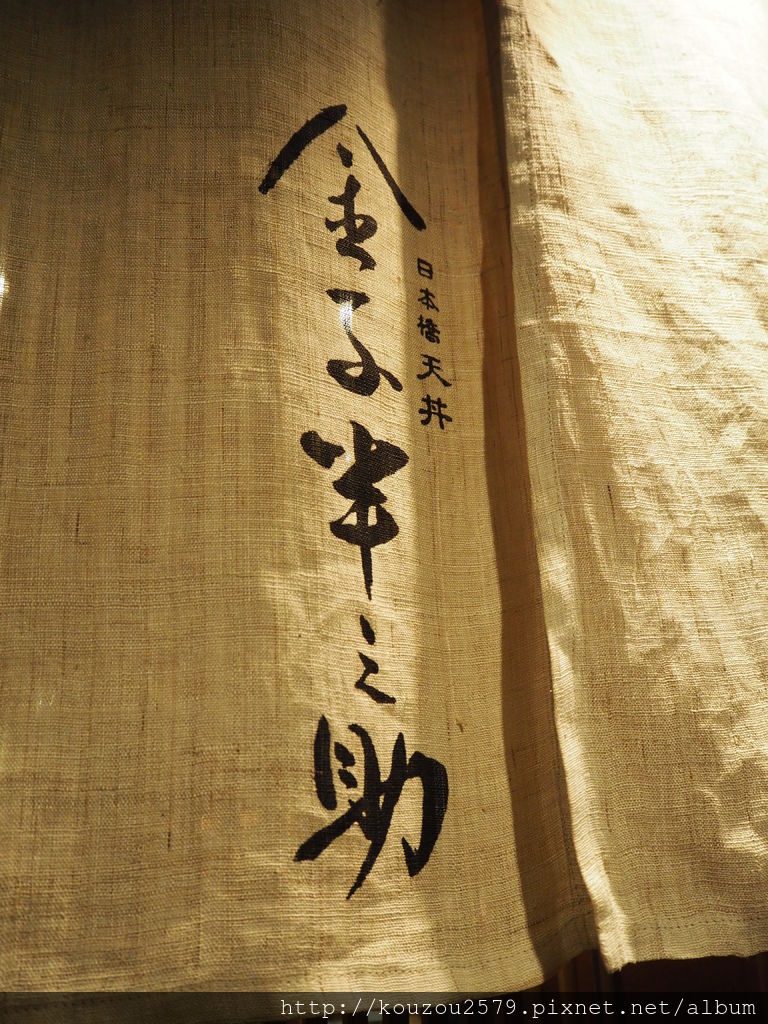 日本橋天丼
金子半之助
http://kouzou2579.pixnet.net/album